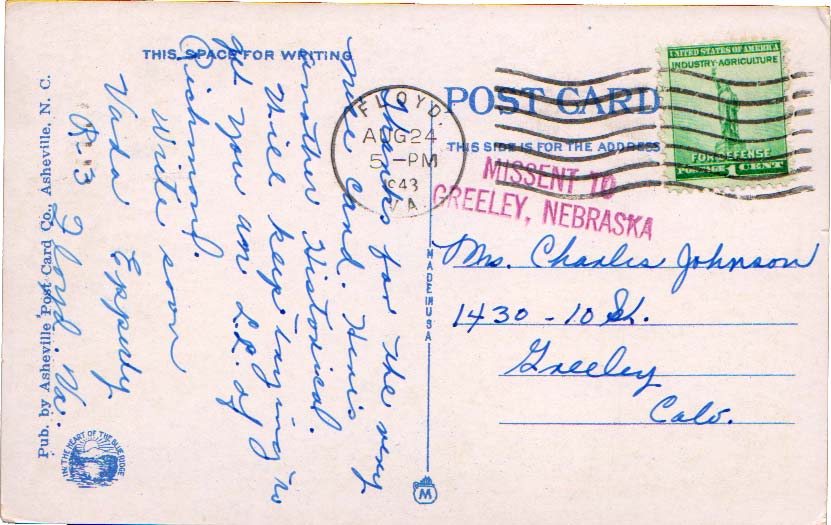 THIS SPACE FOR WRITING
Thanks for the very
nice card. Here's
another Historical.
Will keep trying to
get you an L.L. of
Richmond.
Write soon
Vada Epperly
R-3 Floyd, Va.
Pub. by Asheville Post Card Co., Asheville, N. C.
IN THE HEART OF THE BLUE RIDGE
MADE IN USA
M
POST CARD
THIS SIDE IS FOR THE ADDRESS
FLOYD.
AUG 24
5 - PM
1943
VA.
UNITED STATES OF AMERICA
INDUSTRY-AGRICULTURE
FOR DEFENSE
POSTAGE 1 CENT
MISSENT TO
GREELEY, NEBRASKA
Mrs. Charles Johnson
1430 - 10 St.
Greeley
Colo.